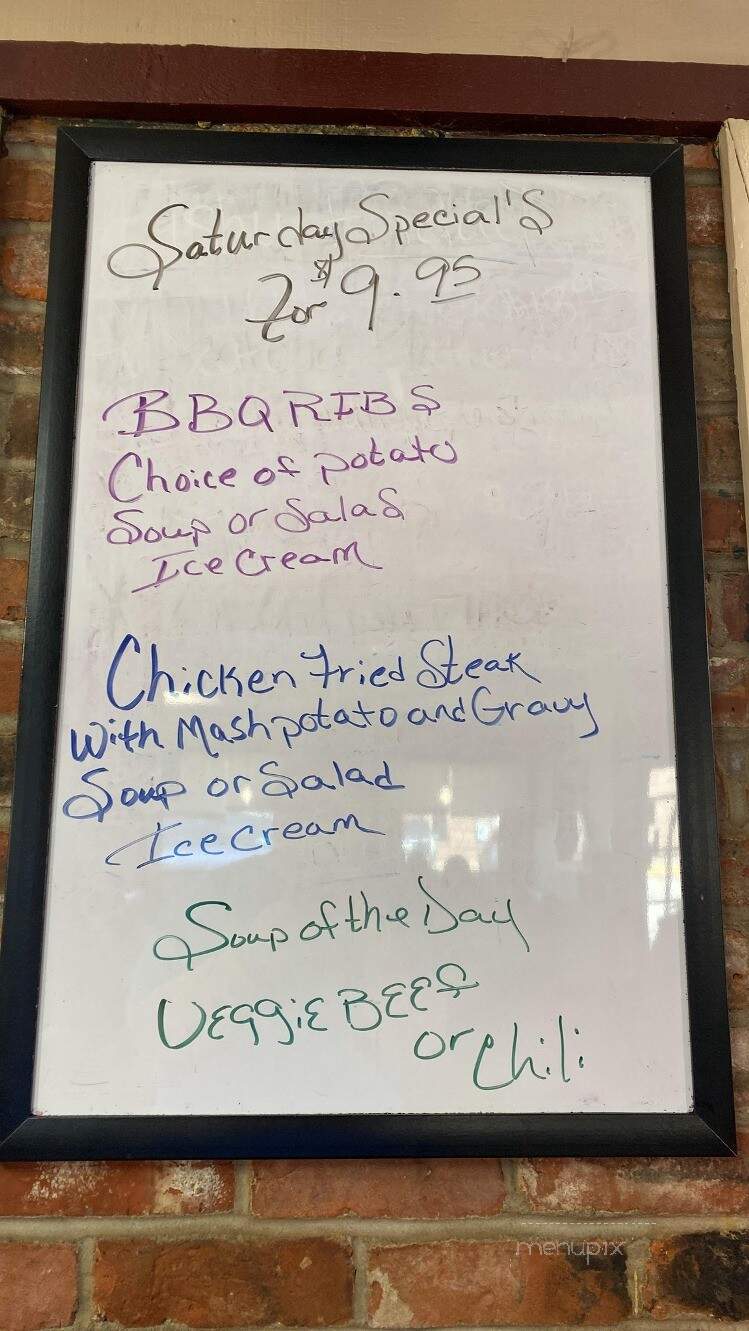 Saturday Special's
For $9.95
BBQ RIBS
Choice of potato
Soup or Salad
Ice cream
Chicken Fried Steak
With Mash potato and Gravy
Soup or Salad
Ice cream
Soup of the Day
VEggiE BEEf
or chili
menupix